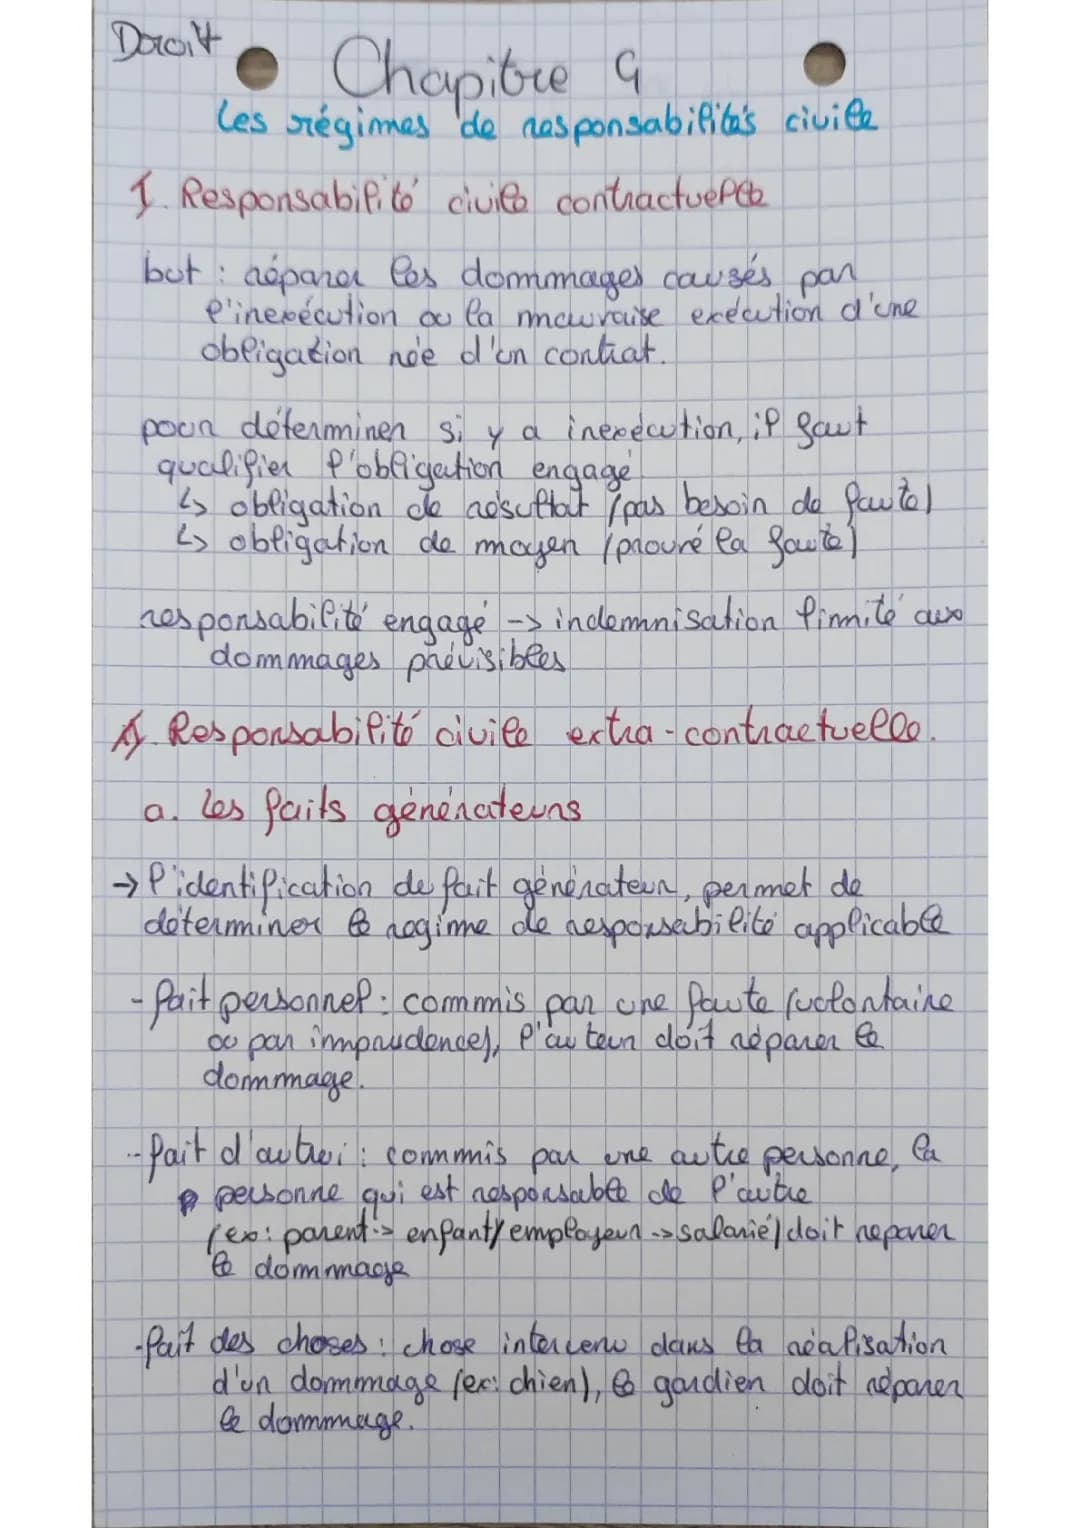 Droit
Chapitre 9
Les régimes de responsabilités civile
I. Responsabilité civile contractuelle
but : réparer les dommages causés par
l'inexécution ou la mauvaise exécution d'une
obligation née d'un contrat.
pour déterminer si y a inexécution, il faut
qualifier l'obligation engagé.
↳ obligation de résultat (pas besoin de faute)
↳ obligation de moyen (prouvé la faute)
responsabilité engagé -> indemnisation limité aux
dommages prévisibles
Responsabilité civile extra-contractuelle.
a. Les faits générateurs
→ l'identification de fait générateur, permet de
déterminer le regime de responsabilité applicable
- fait personnel : commis par une faute (volontaire
ou par imprudence), l'auteur doit réparer le
dommage.
- fait d'autrui : commis par une autre personne, la
personne qui est responsable de l'autre
(ex: parent -> enfant / employeur -> salarié) doit reparer
le dommage
- fait des choses : chose intervenu dans la réalisation
d'un dommage (ex: chien), le gardien doit réparer
le dommage.